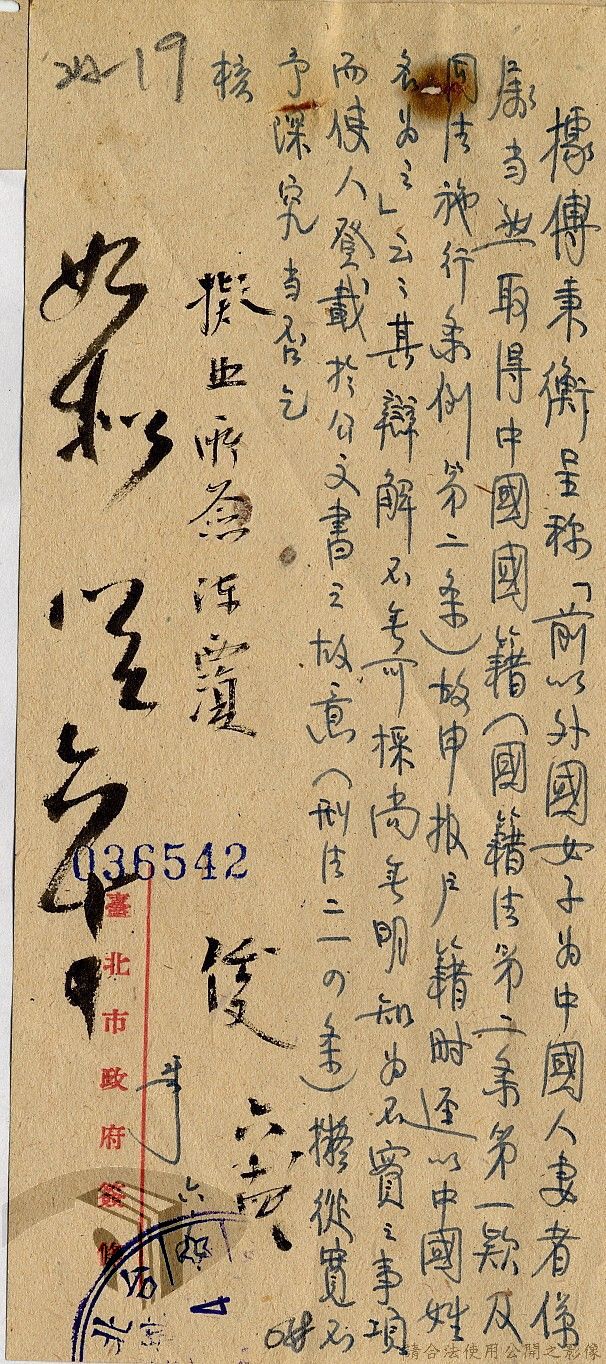 據傅秉衡呈称「前以外國女子为中國人妻者係
屬当然取得中國國籍（國籍法第二条第一款及
同法施行条例第二条）故申报户籍時逕以中國姓
名为之」云云其辯解不無可採尚無明知为不實之事項
而使人登載於公文書之故意（刑法二一四条）擬從寬不
予深究当否乞
核
擬照所簽陳覆
如擬
036542
臺北市政府簽條
19
請合法使用公開之影像